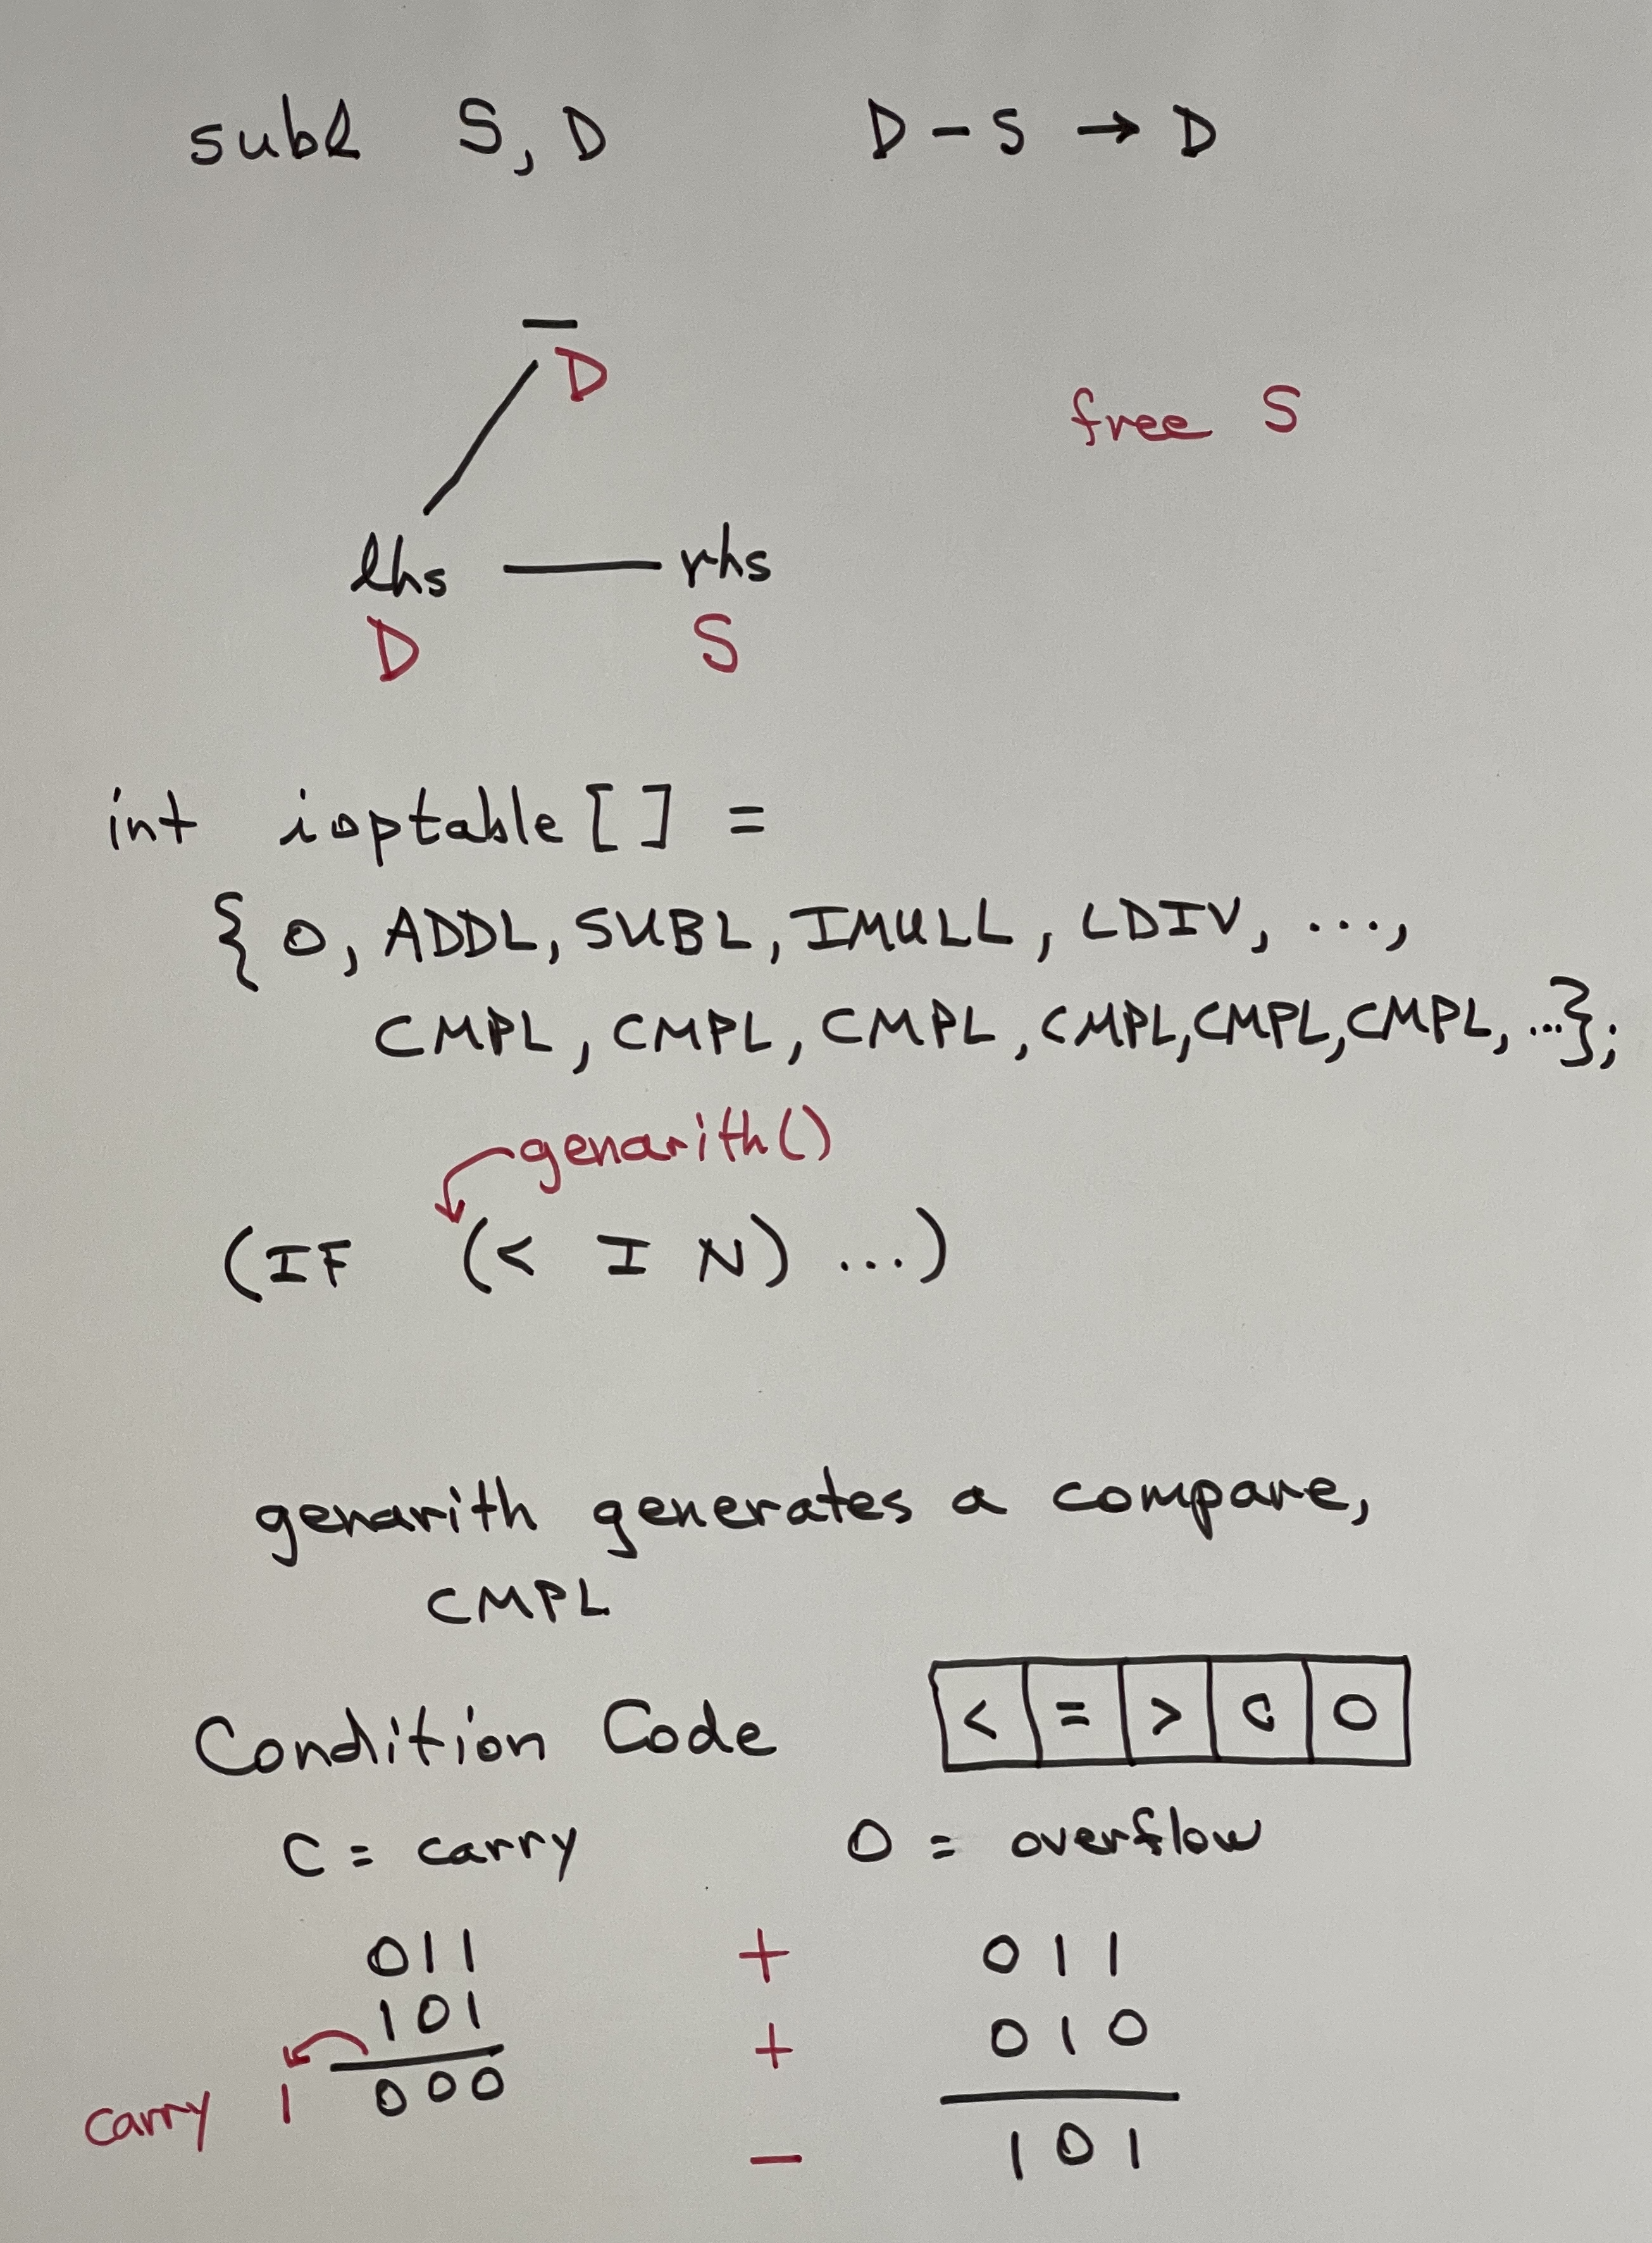 subl S, D D - S → D
—
D
free S
lhs — rhs
D S
int ioptable [ ] =
{ 0, ADDL, SUBL, IMULL, LDIV, ...,
CMPL, CMPL, CMPL, CMPL, CMPL, CMPL, ...};
genarith()
(IF (< I N) ...)
genarith generates a compare,
CMPL
Condition Code < = > C O
C = carry O = overflow
011 + 011
101 + 010
carry 1 000
— 101